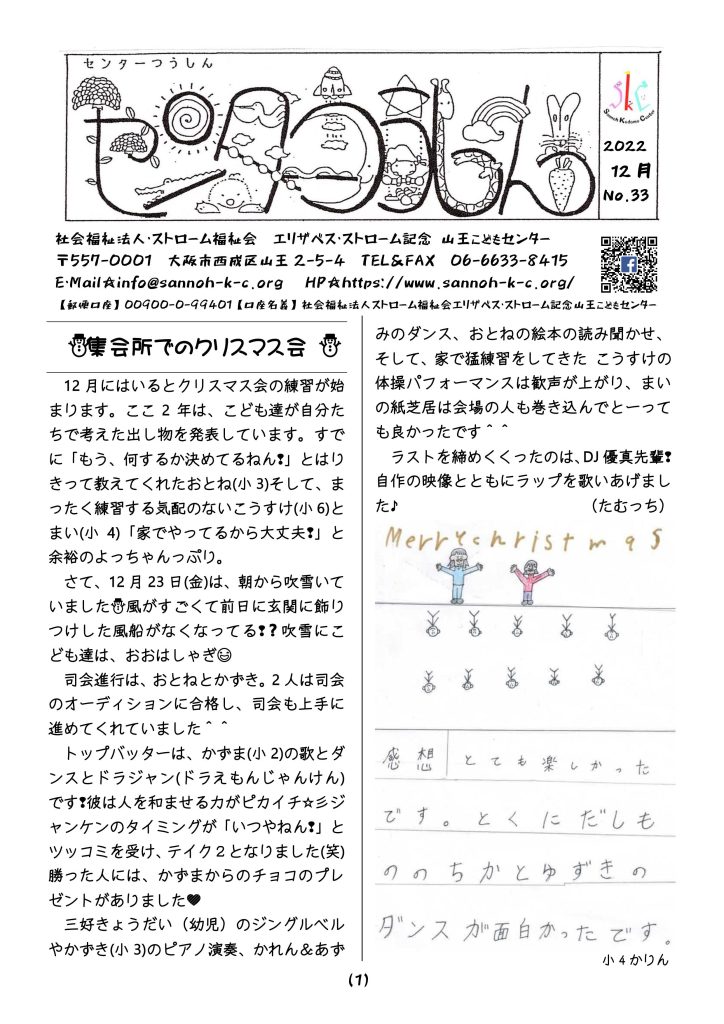 センターつうしん
センターつうしん
SKC
Sannoh Kodomo Center
2022
12月
No.33
社会福祉法人・ストローム福祉会　エリザベス・ストローム記念 山王こどもセンター
〒557-0001　大阪市西成区山王 2-5-4　TEL&FAX　06-6633-8415
E-Mail☆info@sannoh-k-c.org　HP☆https://www.sannoh-k-c.org/
【郵便口座】00900-0-99401【口座名義】社会福祉法人ストローム福祉会エリザベス・ストローム記念山王こどもセンター
☃集会所でのクリスマス会 ☃
12 月にはいるとクリスマス会の練習が始
まります。ここ 2 年は、こども達が自分た
ちで考えた出し物を発表しています。すで
に「もう、何するか決めてるねん❣」とはり
きって教えてくれたおとね(小 3)そして、ま
ったく練習する気配のないこうすけ(小 6)と
まい(小 4)「家でやってるから大丈夫❣」と
余裕のよっちゃんっぷり。
さて、12 月 23 日(金)は、朝から吹雪いて
いました☃風がすごくて前日に玄関に飾り
つけした風船がなくなってる❣❓吹雪にこ
ども達は、おおはしゃぎ😄
司会進行は、おとねとかずき。2 人は司会
のオーディションに合格し、司会も上手に
進めてくれていました＾＾
トップバッターは、かずま(小 2)の歌とダ
ンスとドラジャン(ドラえもんじゃんけん)
です❣彼は人を和ませる力がピカイチ☆彡ジ
ャンケンのタイミングが「いつやねん❣」と
ツッコミを受け、テイク２となりました(笑)
勝った人には、かずまからのチョコのプレ
ゼントがありました♥
三好きょうだい（幼児）のジングルベル
やかずき(小 3)のピアノ演奏、かれん＆あず
みのダンス、おとねの絵本の読み聞かせ、
そして、家で猛練習をしてきた こうすけの
体操パフォーマンスは歓声が上がり、まい
の紙芝居は会場の人も巻き込んでとーって
も良かったです＾＾
ラストを締めくくったのは、DJ 優真先輩❣
自作の映像とともにラップを歌いあげまし
た♪　（たむっち）
Merry christmas
感想　とても楽しかった
です。とくにだしも
ののちかとゆずきの
ダンスが面白かったです。
小 4 かりん
(1)